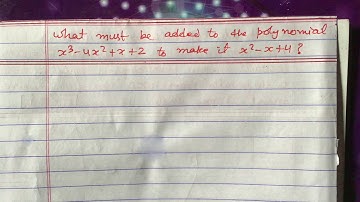 What must be added to the polynomial
x³-4x²+x+2 to make it x²-x+4?